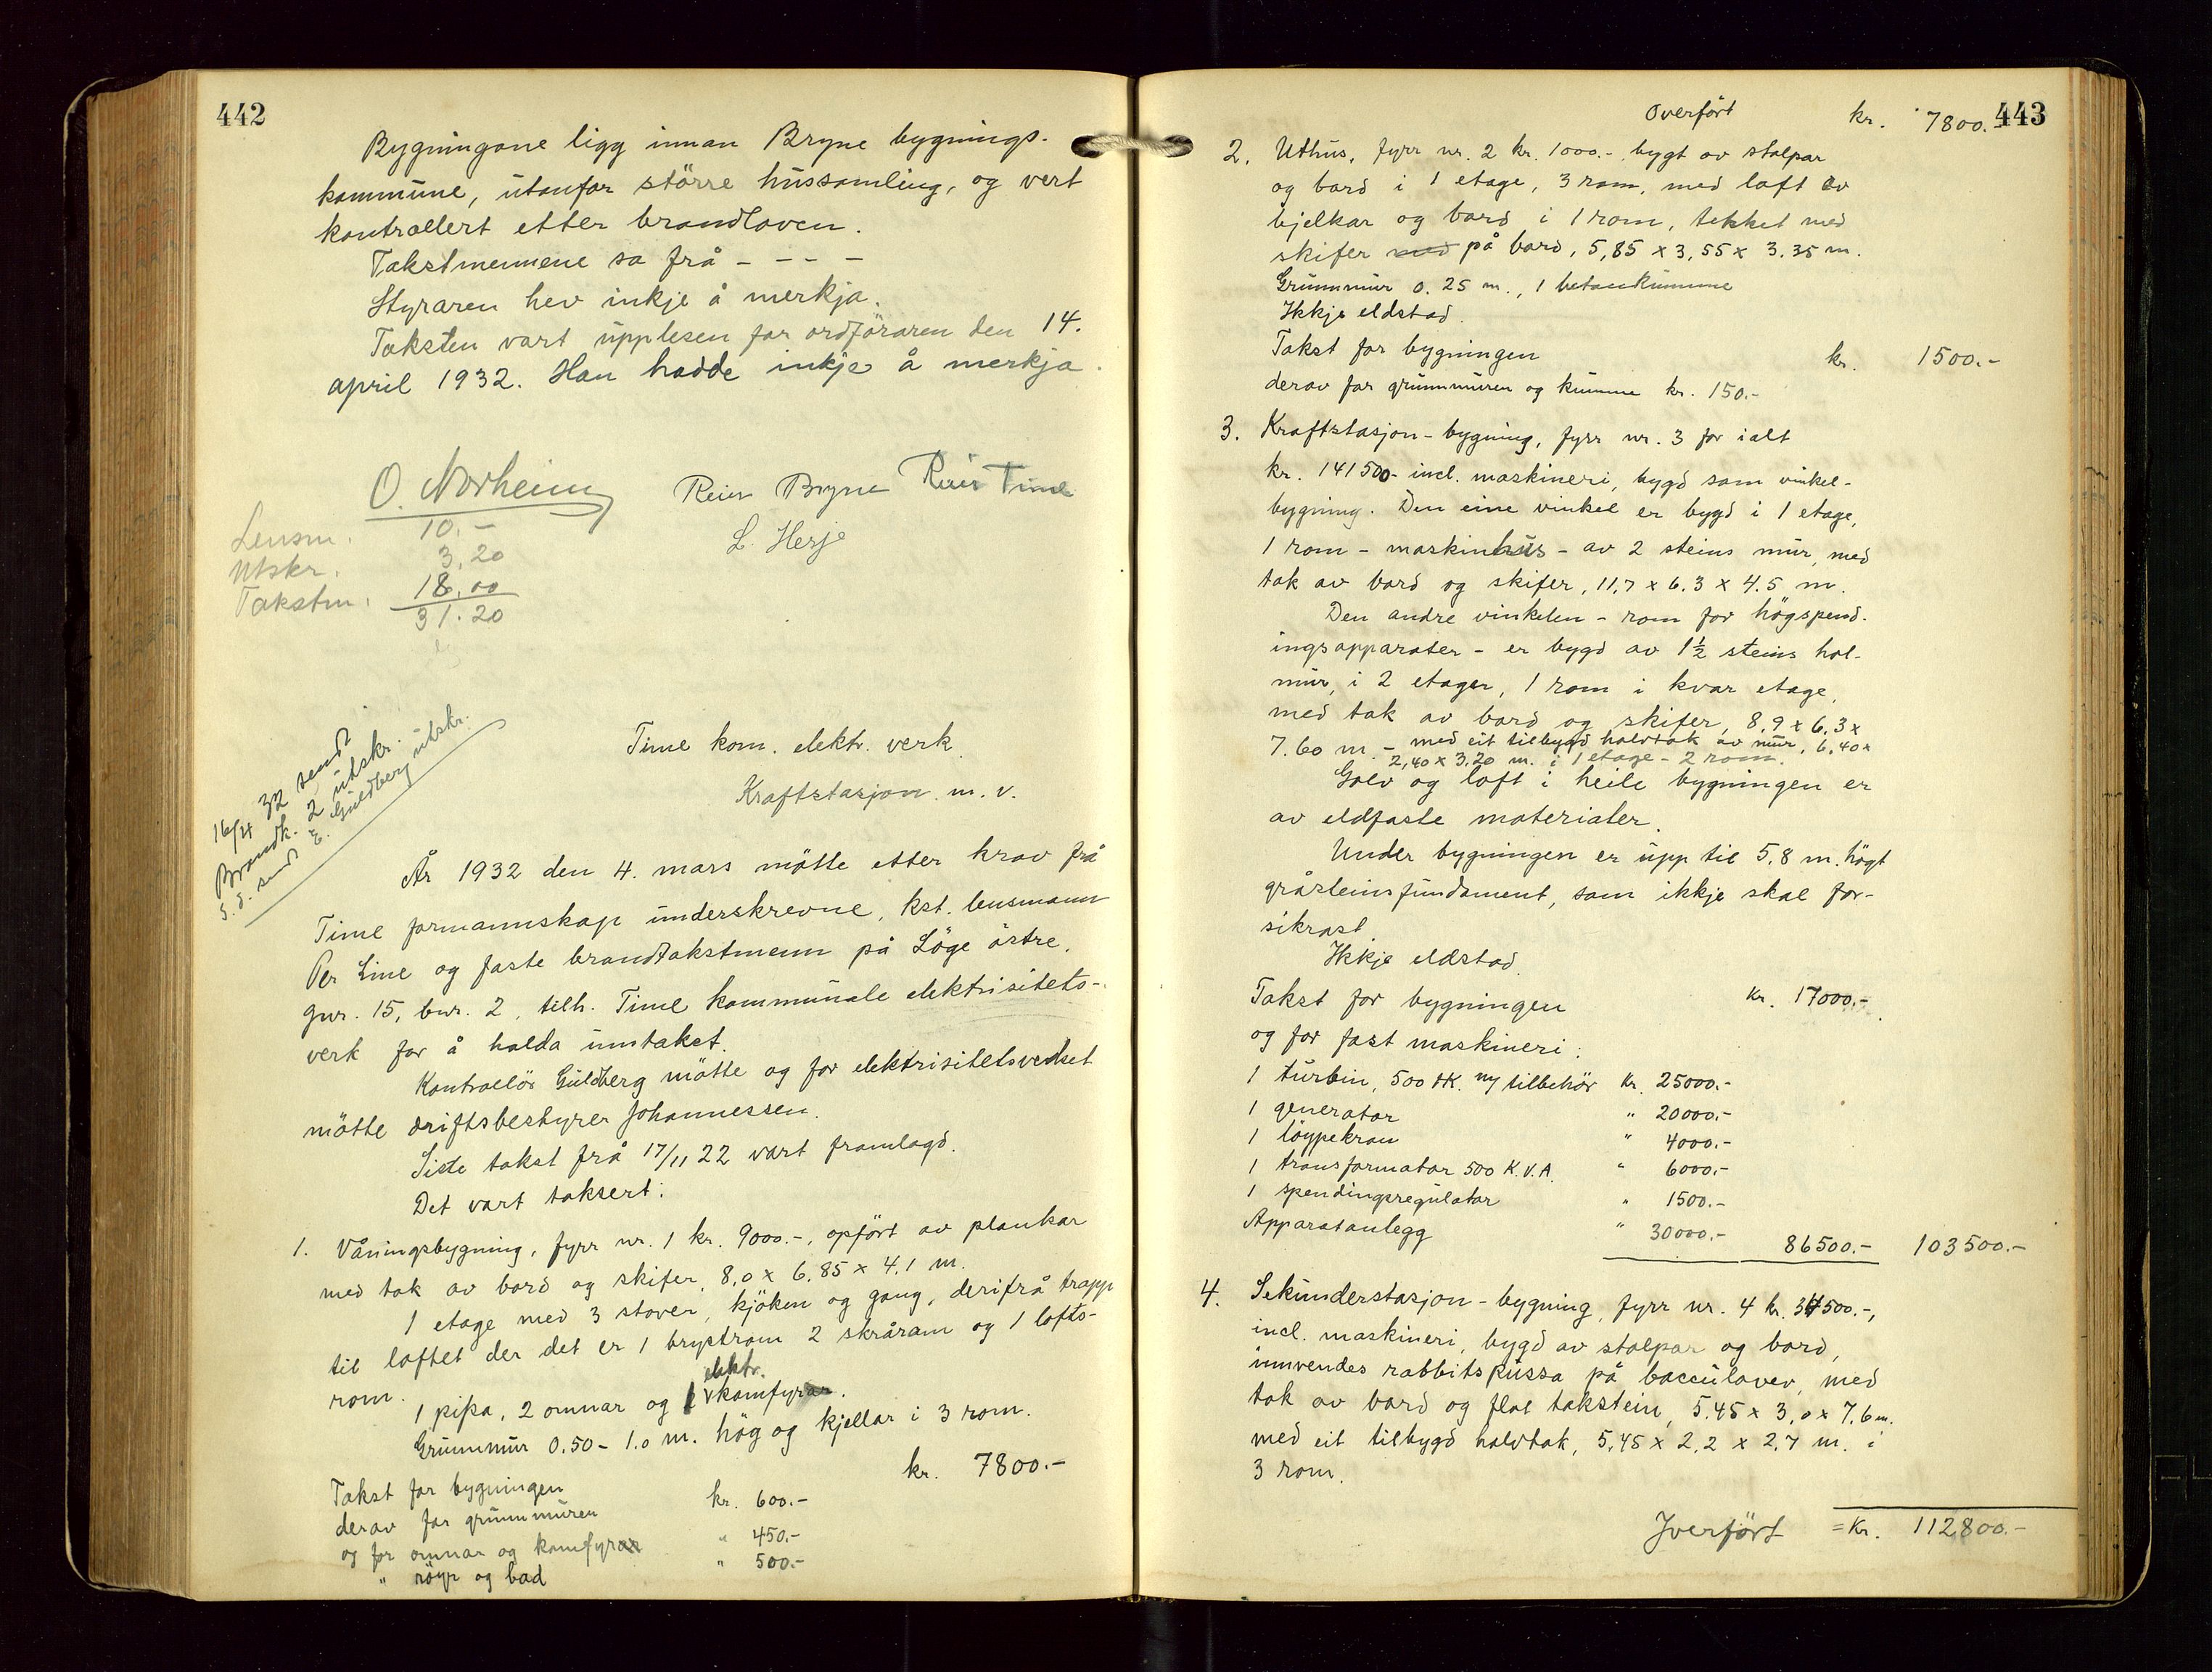 442
Bygningane ligg innan Bryne bygnings-
kommune, utanfor större hussamling, og vert
kontrollert etter brandloven.
Takstmennene sa frå - - - -
Styraren hev inkje å merkja.
Taksten vart upplesen for ordföraren den 14.
april 1932. Han hadde inkje å merkja.
O. Norheim Reier Bryne Reier Time
L. Herje
Lensm. 10.-
Utskr. 3,20
Takstm. 18,00
31.20
16/4 32 sendt
Brandk. 2 utskr.
S.d. sendt E. Guldberg utskr.
Time kom. elektr. verk.
Kraftstasjon m. v.
År 1932 den 4. mars mötte etter krav frå
Time formannskap underskrevne, kst. lensmann
Per Line og faste brandtakstmenn på Löge östre,
gnr. 15, bnr. 2, tilh. Time kommunale elektrisitets-
verk for å halda umtakst.
Kontrollör Guldberg mötte og for elektrisitetsverket
mötte driftsbestyrer Johannessen.
Siste takst frå 17/11 22 vart framlagd.
Det vart taksert:
1. Våningsbygning, fyrr nr. 1 kr. 9000.-, opfört av plankar
med tak av bord og skifer, 8,0 x 6,85 x 4,1 m.
1 etage med 3 stover, kjöken og gang, derifrå trapp
til loftet der det er 1 brystrom 2 skråram og 1 lofts-
rom.
elektr.
1 pipa, 2 omnar og 1 v komfyrar.
Grunnmur 0.50 - 1.0 m. hög og kjellar i 3 rom.
Takst for bygningen kr. 7800.-
derav for grunnmuren kr. 600.-
og for omnar og komfyrar " 450.-
" röyr og bad " 500.-
443
Overfört kr. 7800.-
2. Uthus, fyrr nr. 2 kr. 1000.-, bygt av stolpar
og bord i 1 etage, 3 rom, med loft av
bjelkar og bord i 1 rom, tekket med
skifer med på bord, 5,85 x 3,55 x 3.35 m.
Grunnmur 0.25 m., 1 betonkumme
Ikkje eldstad.
Takst for bygningen kr. 1500.-
derav for grunnmuren og kumme kr. 150.-
3. Kraftstasjon-bygning, fyrr nr. 3 for ialt
kr. 141500- incl. maskineri, bygd som vinkel-
bygning. Den eine vinkel er bygd i 1 etage,
1 rom - maskinhus - av 2 steins mur, med
tak av bord og skifer, 11,7 x 6.3 x 4.5 m.
Den andre vinkelen - rom for högspend-
ingsapparater - er bygd av 1½ steins hol-
mur, i 2 etager, 1 rom i kvar etage,
med tak av bord og skifer, 8,9 x 6,3 x
7.60 m - med eit tilbygd halvtak av mur, 6,40 x
2,40 x 3,20 m. i 1 etage - 2 rom.
Golv og loft i heile bygningen er
av eldfaste materialer.
Under bygningen er upp til 5,8 m. högt
gråsteinsfundament, som ikkje skal for-
sikrast.
Ikkje eldstad.
Takst for bygningen kr. 17000.-
og for fast maskineri:
1 turbin, 500 HK. ny tilbehör kr. 25000.-
1 generator " 20000.-
1 löypekran " 4000.-
1 transformator 500 K.V.A. " 6000.-
1 spendingsregulator " 1500.-
Apparatanlegg " 30000.- 86500.- 103500.-
4. Sekunderstasjon-bygning, fyrr nr. 4 kr. 34500.-,
incl. maskineri, bygd av stolpar og bord,
innvendes rabbitspussa på bacculaver, med
tak av bord og flat takstein, 5.45 x 3,0 x 7,6 m.
med eit tilbygd halvtak, 5,45 x 2,2 x 2,7 m. i
3 rom.
Overfört = kr. 112800.-